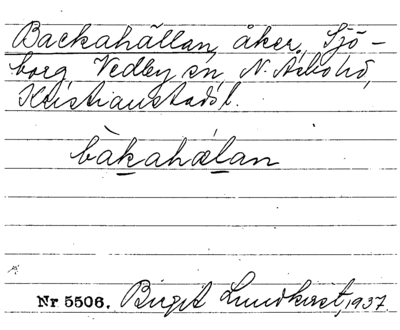 Backahällan, åker, Sjö-
borg, Vedby sn, N. Åsbo hd,
Kristianstads l.
bàkahælan
Nr 5506. Birgit Lundkvist, 1937.